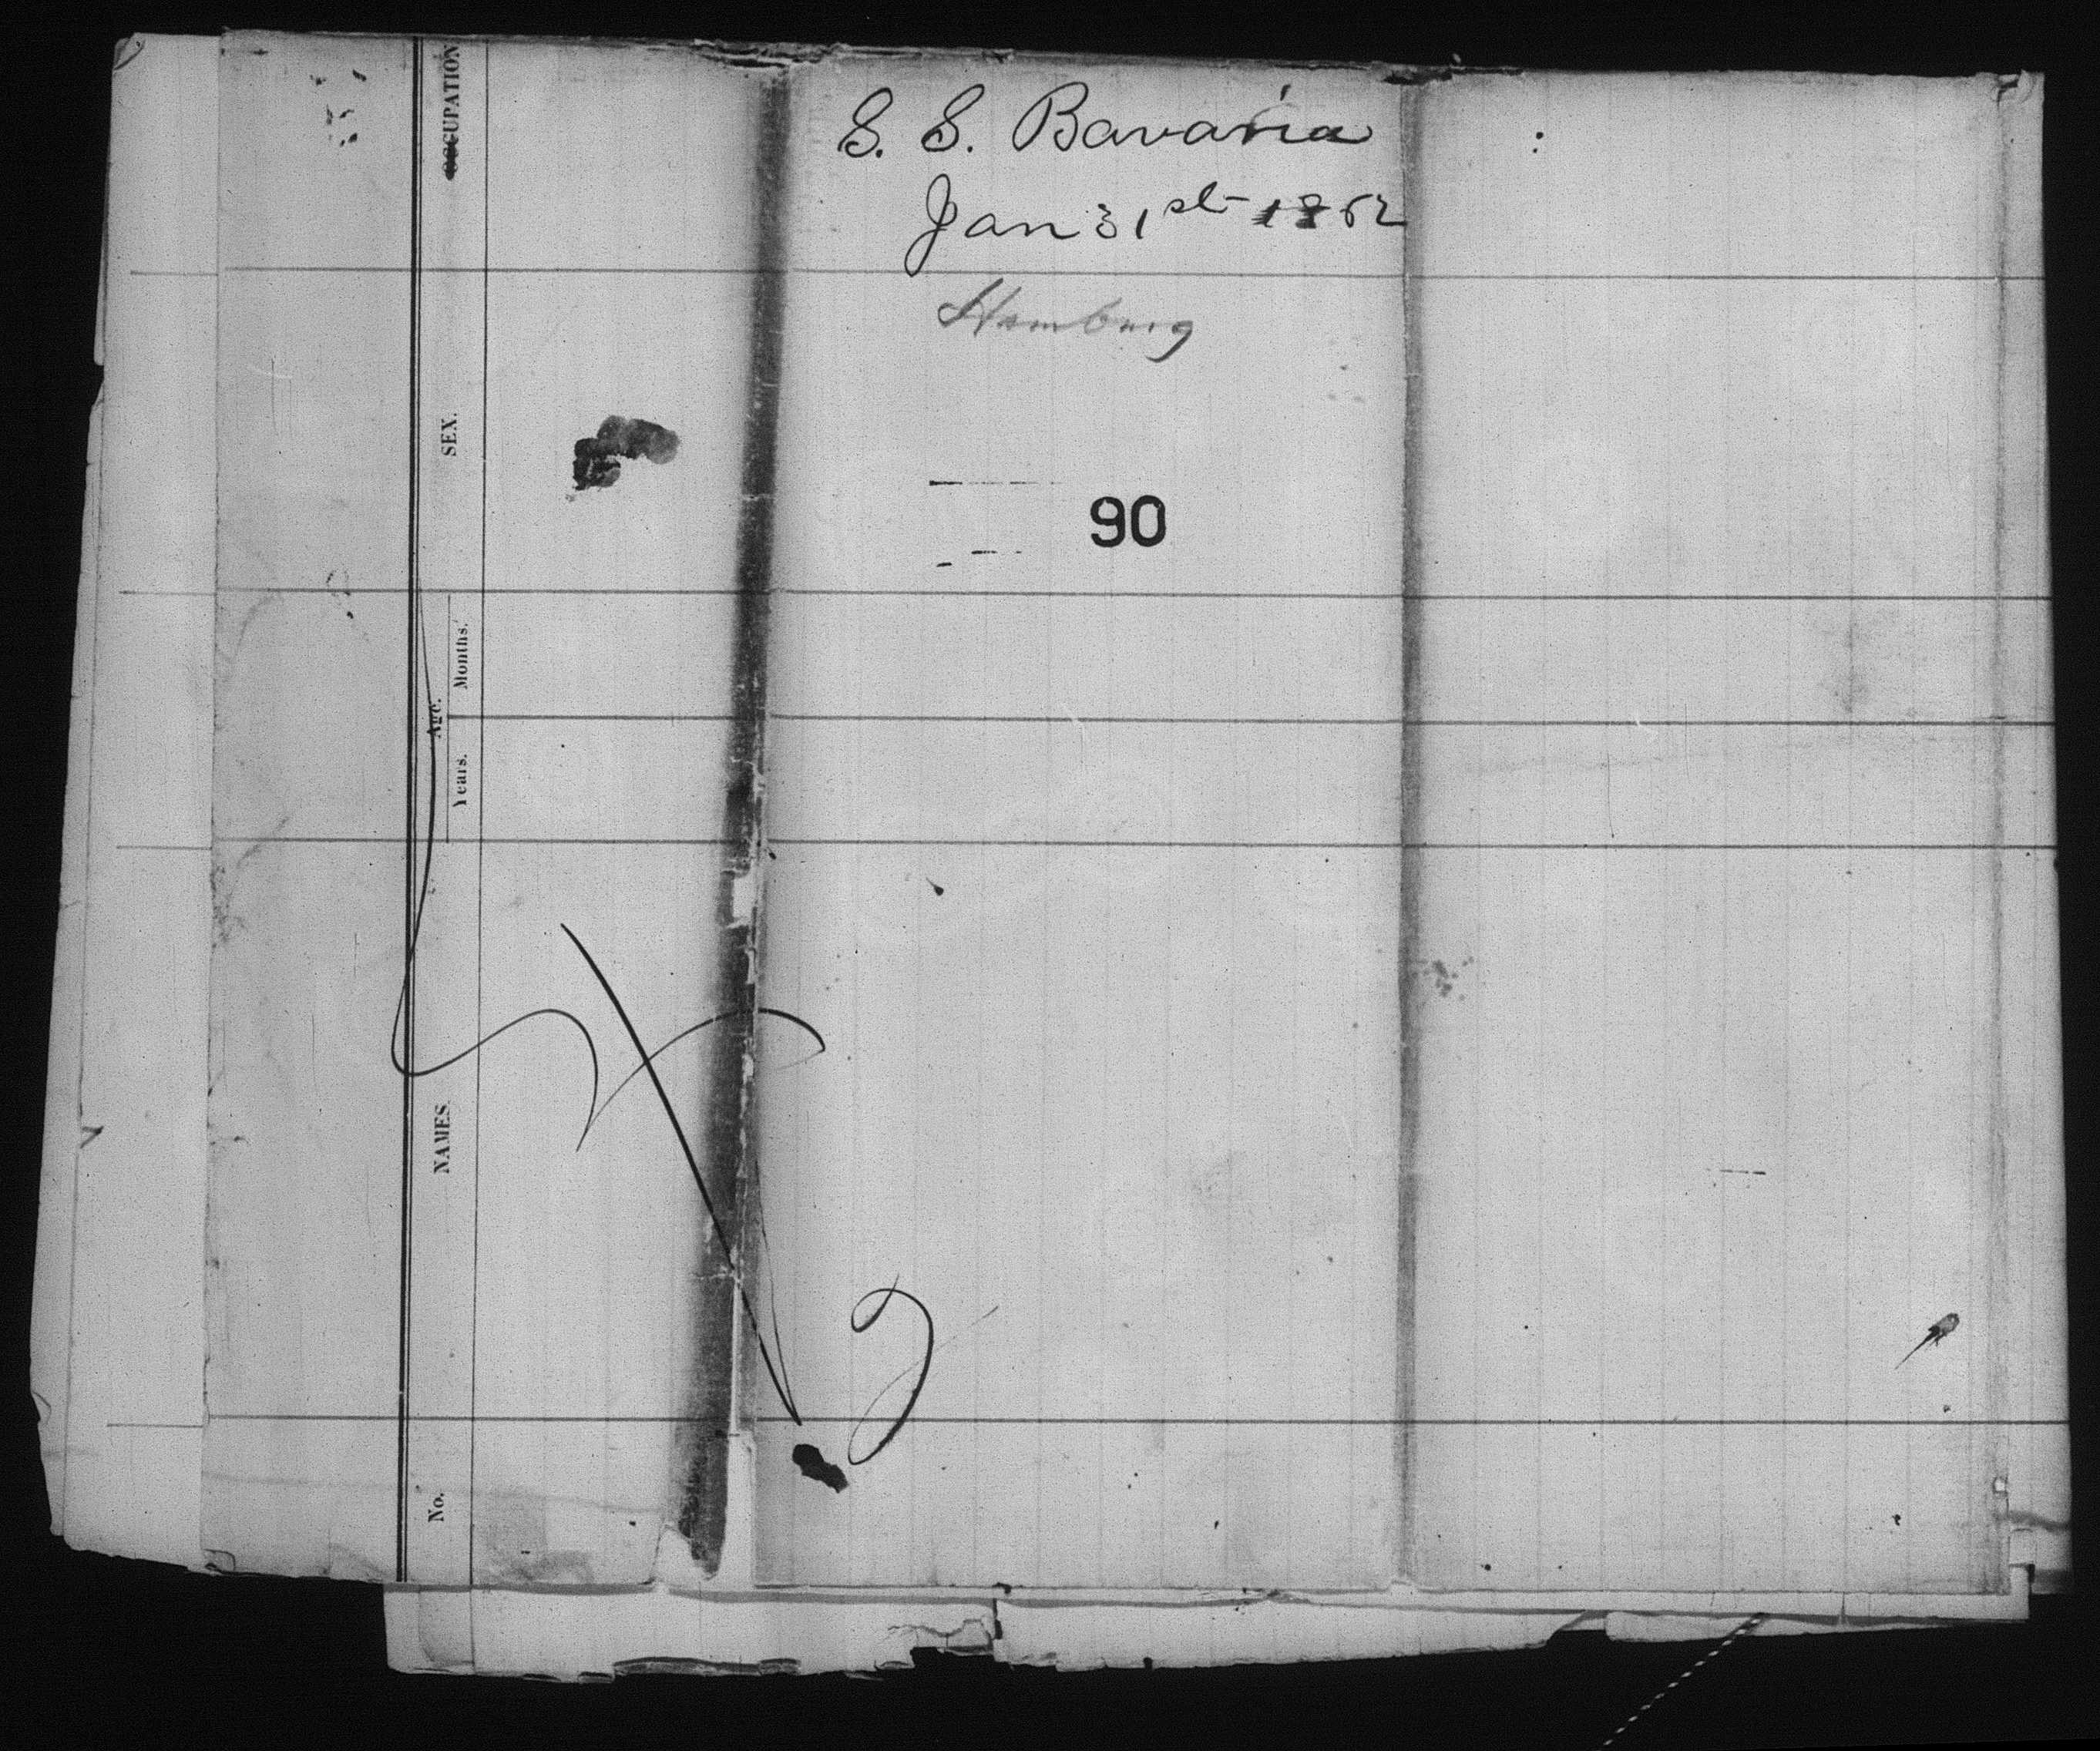 S. S. Bavaria
Jan 31st 1862
Hamburg
90
OCCUPATION
SEX.
Age.
Months.
Years.
NAMES.
No.